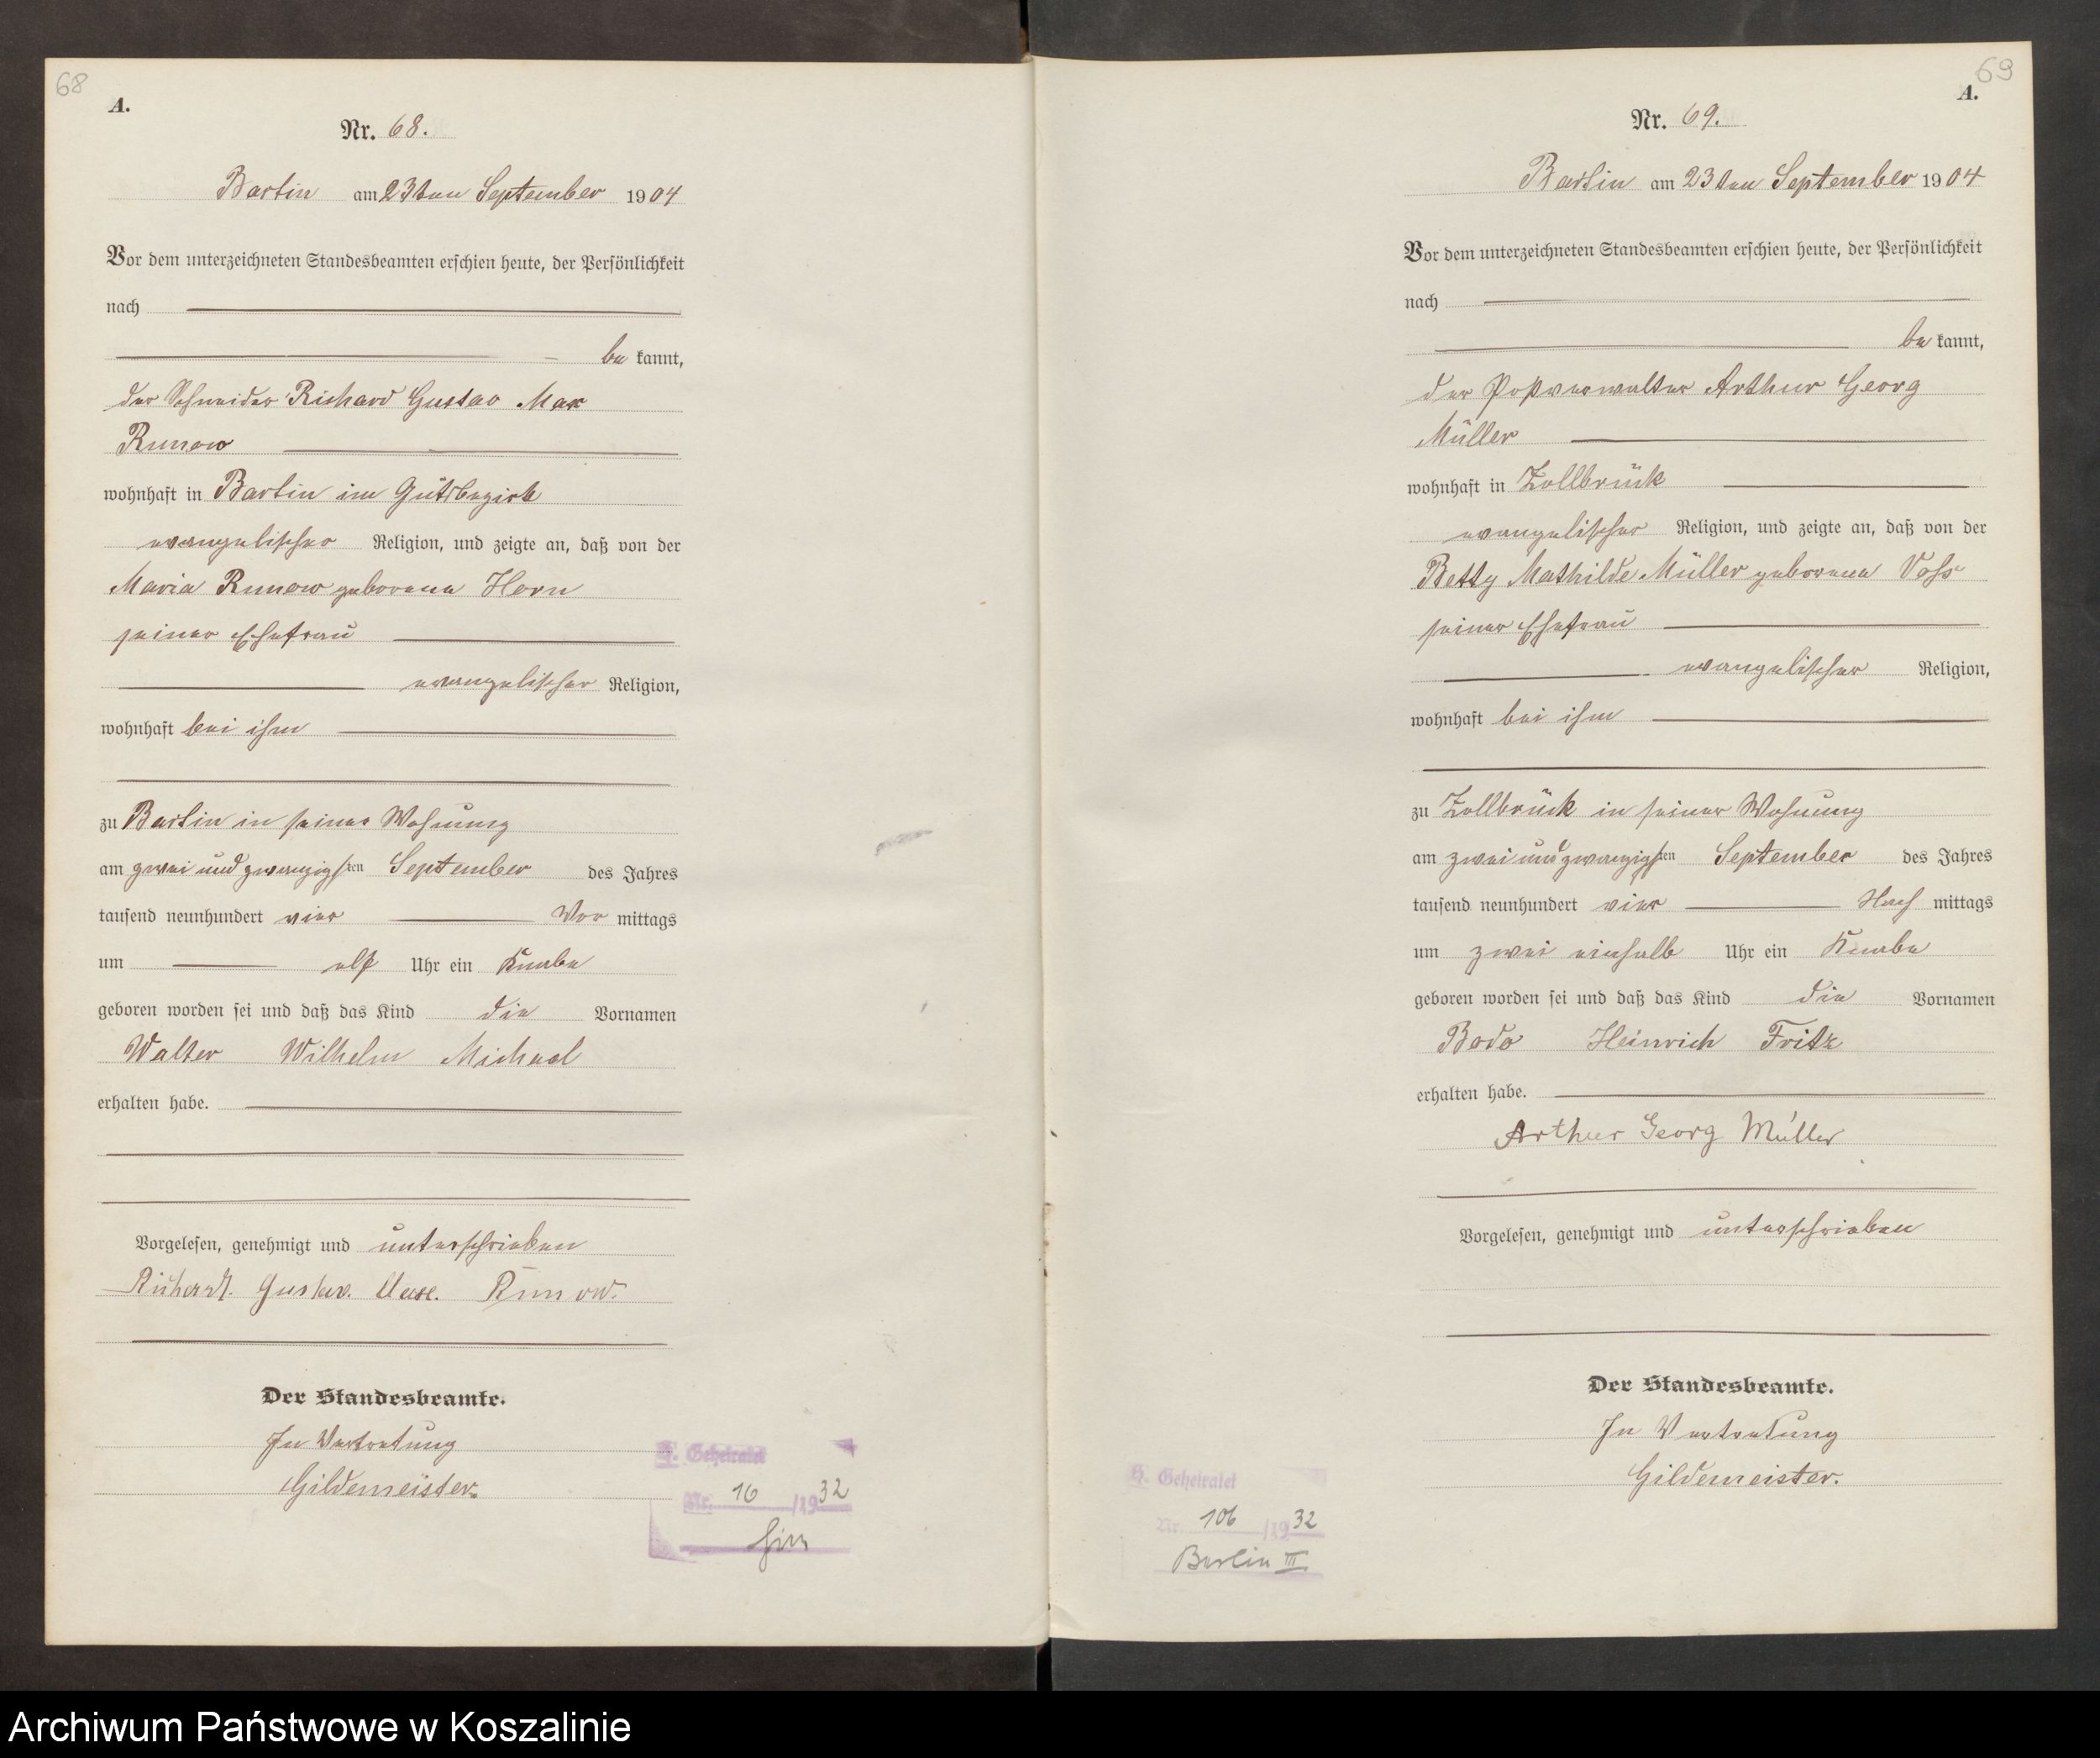 68
A.
Nr. 68.
Bartin am 23ten September 1904
Vor dem unterzeichneten Standesbeamten erschien heute, der Persönlichkeit
nach
be kannt,
der Schneider Richard Gustav Max
Runow
wohnhaft in Bartin im Gutsbezirk
evangelischer Religion, und zeigte an, daß von der
Maria Runow geborene Horn
seiner Ehefrau
evangelischer Religion,
wohnhaft bei ihm
zu Bartin in seiner Wohnung
am zwei und zwanzigsten September des Jahres
tausend neunhundert vier Vor mittags
um elf Uhr ein Knabe
geboren worden sei und daß das Kind die Vornamen
Walter Wilhelm Michael
erhalten habe.
Vorgelesen, genehmigt und unterschrieben
Richard. Gustav. Max. Runow.
Der Standesbeamte.
In Vertretung
Gildemeister.
H. Geheiratet
Nr. 16 /1932
hier
69
A.
Nr. 69.
Bartin am 23ten September 1904
Vor dem unterzeichneten Standesbeamten erschien heute, der Persönlichkeit
nach
be kannt,
der Postverwalter Arthur Georg
Müller
wohnhaft in Zollbrück
evangelischer Religion, und zeigte an, daß von der
Betty Mathilde Müller geborene Voss
seiner Ehefrau
evangelischer Religion,
wohnhaft bei ihm
zu Zollbrück in seiner Wohnung
am zwei und zwanzigsten September des Jahres
tausend neunhundert vier Nach mittags
um zwei einhalb Uhr ein Knabe
geboren worden sei und daß das Kind die Vornamen
Bodo Heinrich Fritz
erhalten habe.
Arthur Georg Müller
Vorgelesen, genehmigt und unterschrieben
Der Standesbeamte.
In Vertretung
Gildemeister.
H. Geheiratet
Nr. 106 /1932
Berlin III
Archiwum Państwowe w Koszalinie